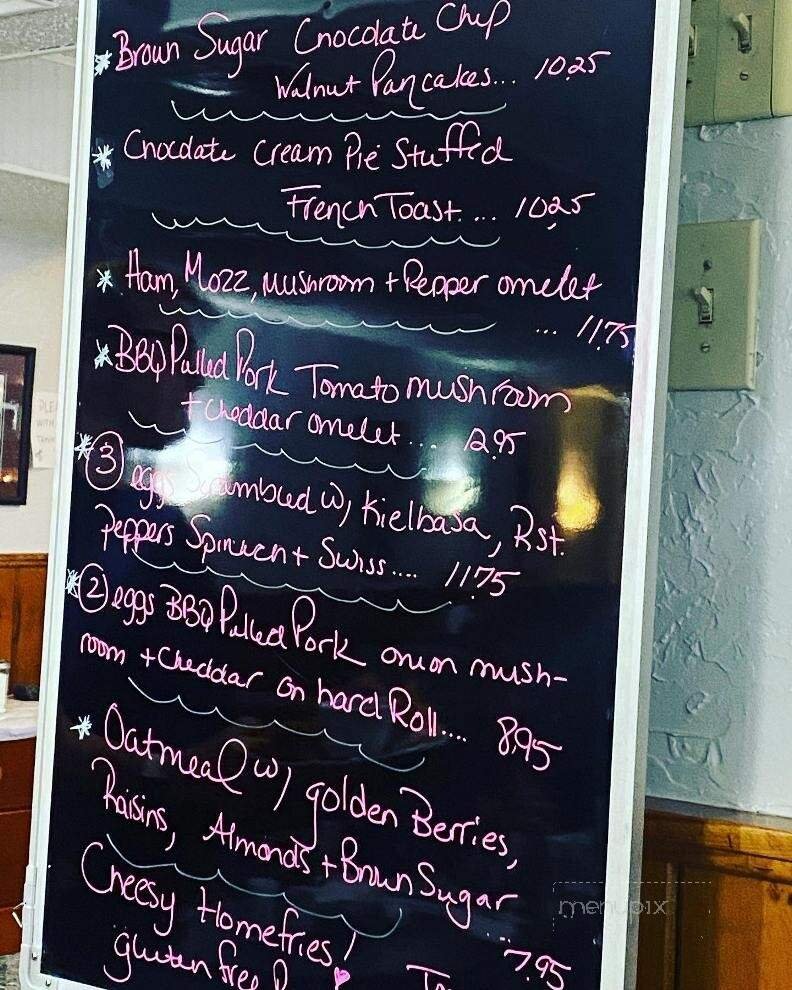 * Brown Sugar Chocolate Chip
Walnut Pancakes... 10.25
* Chocolate Cream Pie Stuffed
French Toast... 10.25
* Ham, Mozz, Mushroom + Pepper omelet
... 11.75
* BBQ Pulled Pork Tomato mushroom
+ cheddar omelet... 12.95
* 3 eggs Scrambled w/ Kielbasa, Rst.
Peppers Spinach + Swiss.... 11.75
* 2 eggs BBQ Pulled Pork onion mush-
room + cheddar on hard Roll.... 8.95
* Oatmeal w/ golden Berries,
Raisins, Almonds + Brown Sugar
... 7.95
Cheesy Homefries!
gluten free
menupix